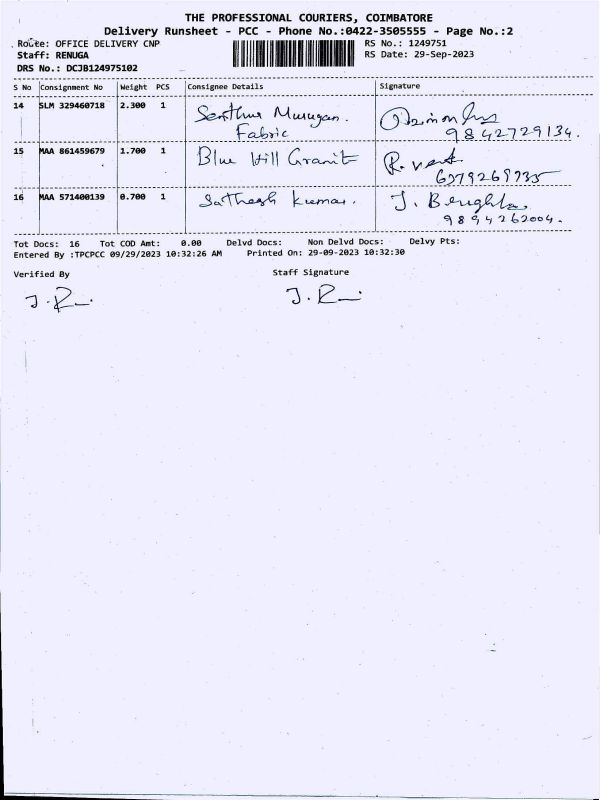 THE PROFESSIONAL COURIERS, COIMBATORE
Delivery Runsheet - PCC - Phone No.:0422-3505555 - Page No.:2
Route: OFFICE DELIVERY CNP RS No.: 1249751
Staff: RENUGA RS Date: 29-Sep-2023
DRS No.: DCJB124975102
S No Consignment No Weight PCS Consignee Details Signature
14 SLM 329460718 2.300 1 Senthur Murugan.
Fabric 9842729134.
15 MAA 861459679 1.700 1 Blue Hill Granit R.
6379269735
16 MAA 571400139 0.700 1 Sathesh Kumar. J.
9894262004.
Tot Docs: 16 Tot COD Amt: 0.00 Delvd Docs: Non Delvd Docs: Delvy Pts:
Entered By :TPCPCC 09/29/2023 10:32:26 AM Printed On: 29-09-2023 10:32:30
Verified By Staff Signature